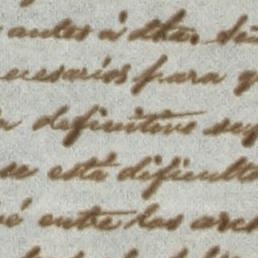 antes á dha. Se
ecesarios para q
definitivo seg
se está dificulta
é entre los arch